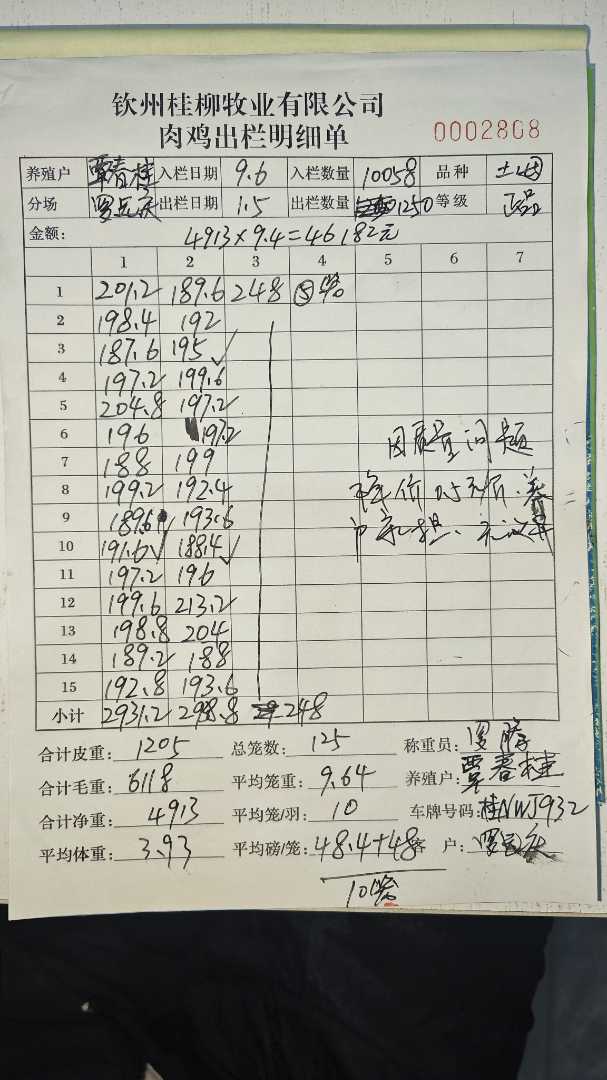 钦州桂柳牧业有限公司
肉鸡出栏明细单 0002808
养殖户 覃春桂 入栏日期 9.6 入栏数量 10058 品种
分场 出栏日期 1.5 出栏数量 1250 等级 正品
金额: 4913×9.4=46182元
1 2 3 4 5 6 7
1 201.2 189.6 248 ⑤笼
2 198.4 192
3 187.6 195
4 197.2 199.6
5 204.8 197.2
6 196 197.2
7 188 199
因质量问题
8 199.2 192.4
降价0.5元/斤.养
9 189.6 193.6
户承担.
10 191.6 188.4
11 197.2 196
12 199.6 213.2
13 198.8 204
14 189.2 188
15 192.8 193.6
小计 2931.2 298.8 248
合计皮重: 1205 总笼数: 125 称重员:
合计毛重: 6118 平均笼重: 9.64 养殖户: 覃春桂
合计净重: 4913 平均笼/羽: 10 车牌号码: 桂NWJ932
平均体重: 3.93 平均磅/笼: 48.4+48 客 户:
10笼